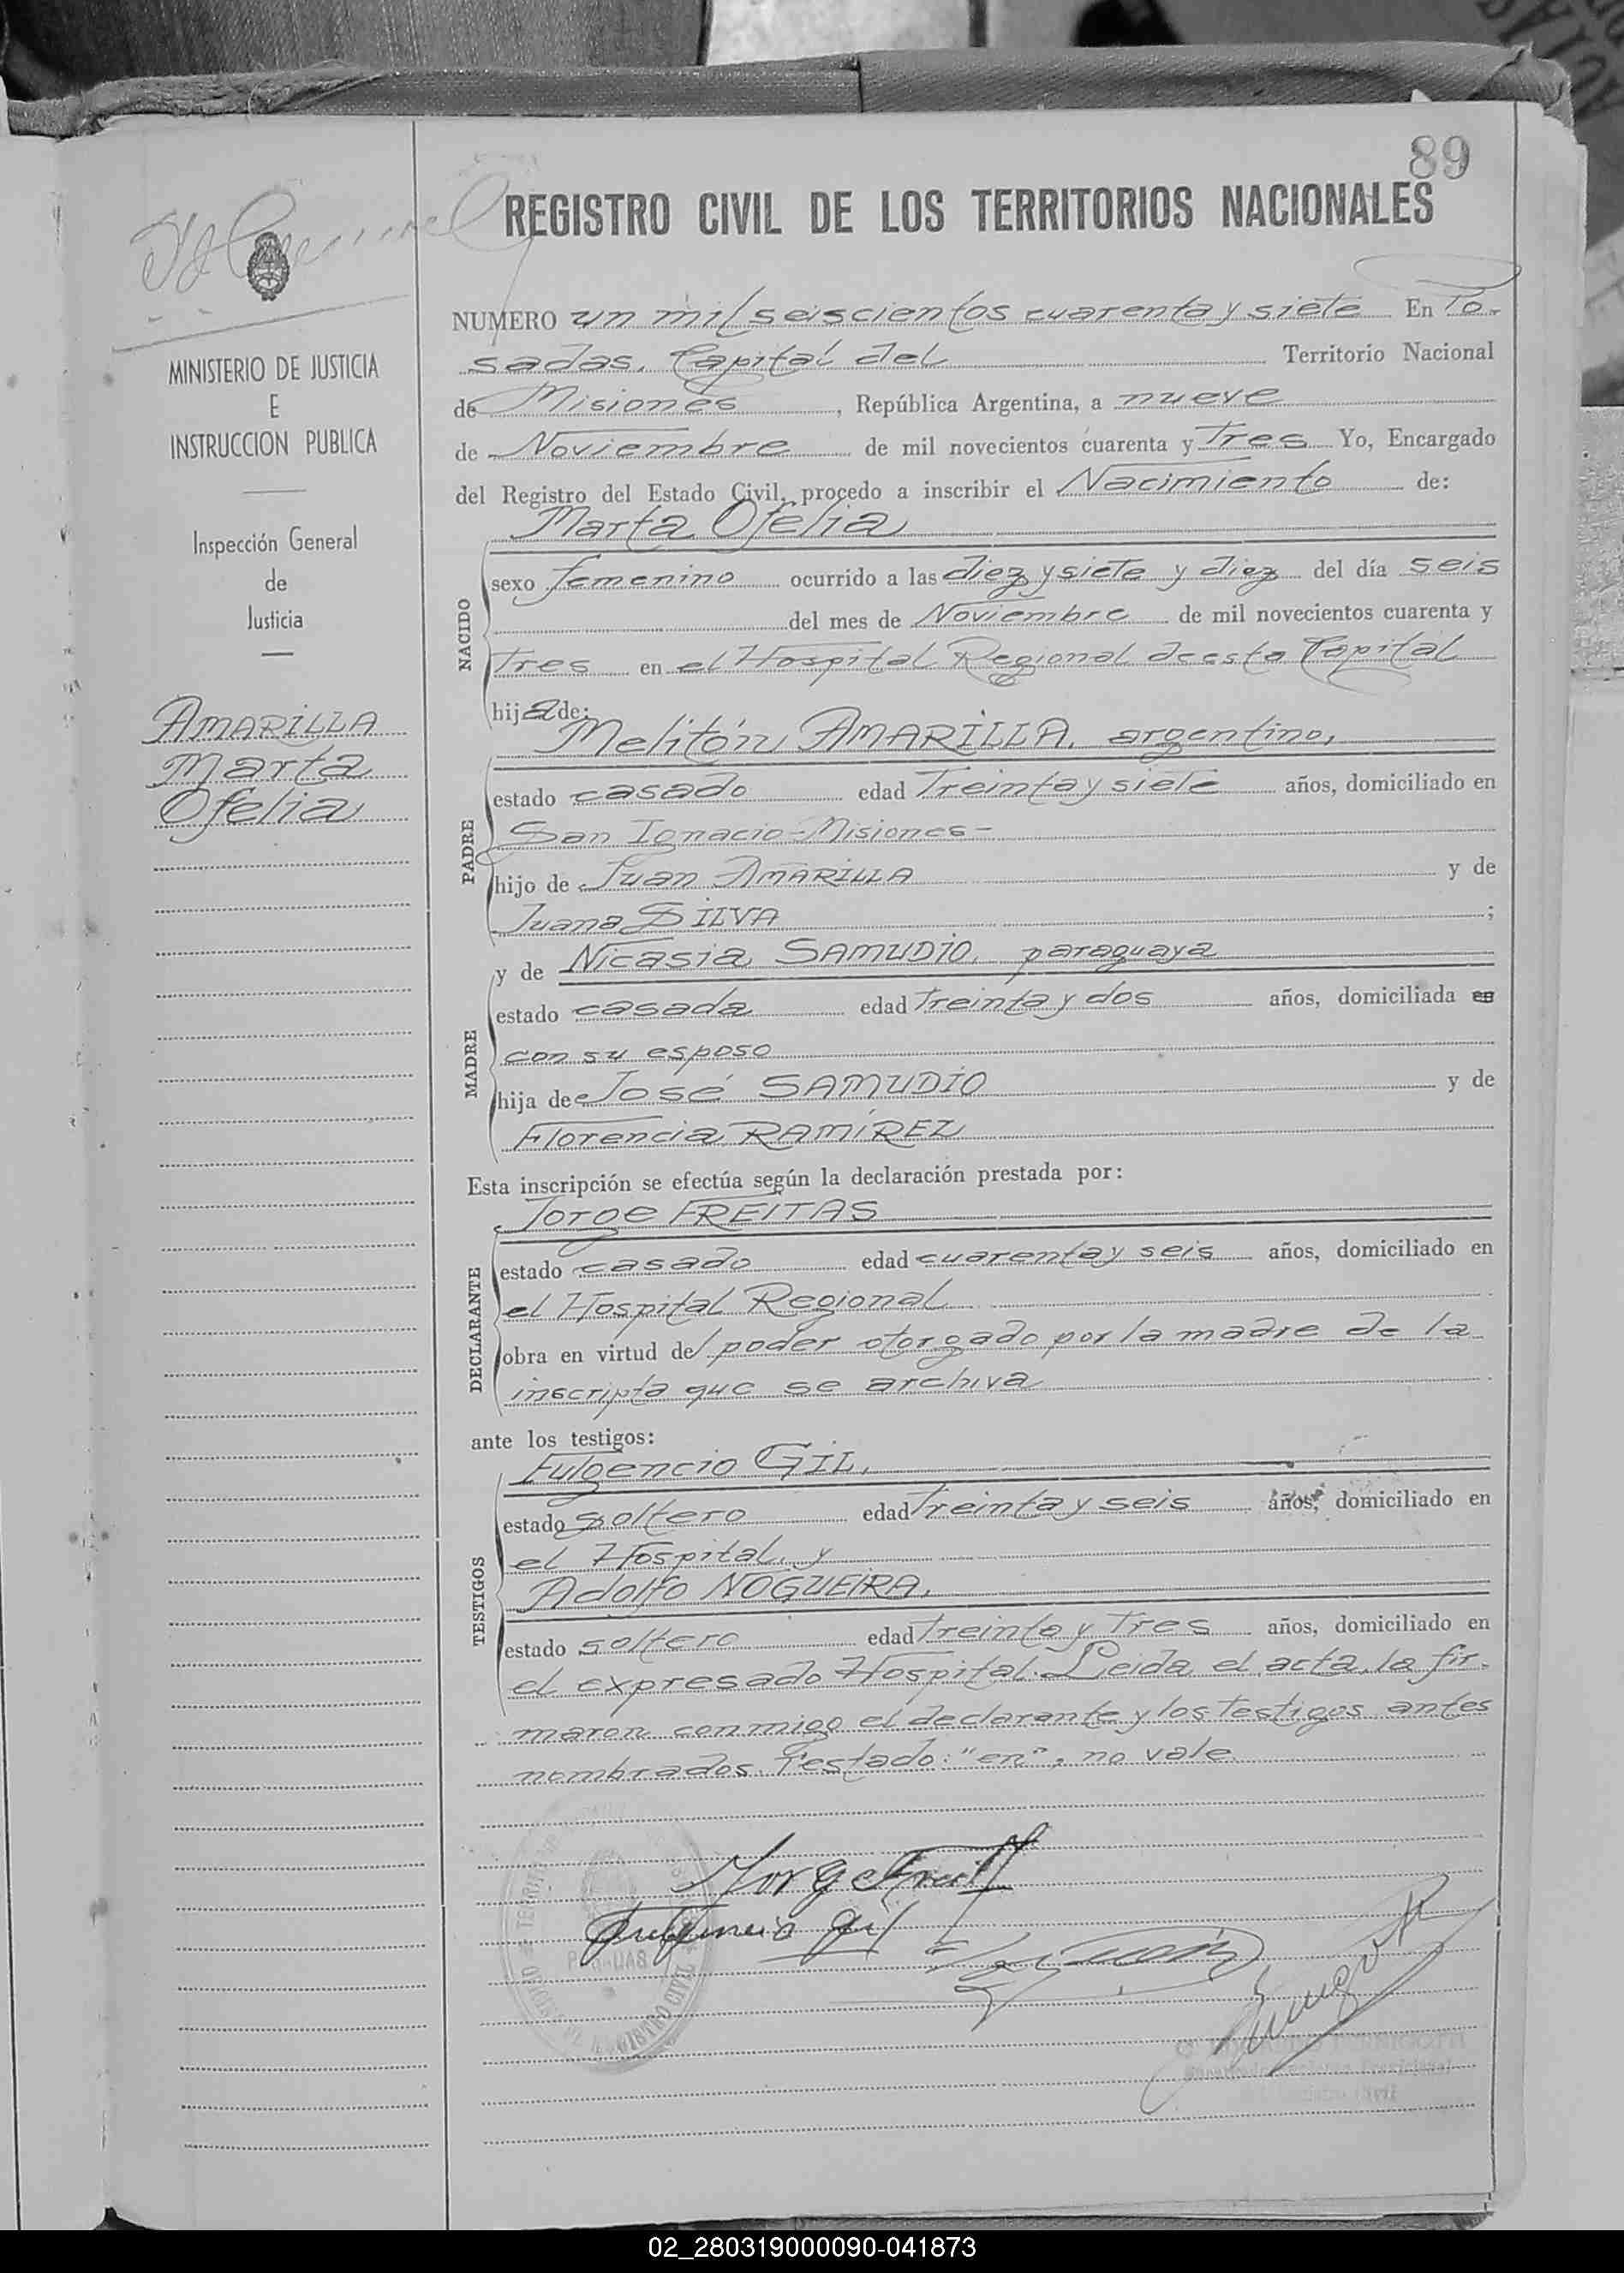 89
REGISTRO CIVIL DE LOS TERRITORIOS NACIONALES
MINISTERIO DE JUSTICIA
E
INSTRUCCION PUBLICA
Inspección General
de
Justicia
AMARILLA
Marta
Ofelia
NUMERO un mil seiscientos cuarenta y siete En Po-
sadas, Capital del Territorio Nacional
de Misiones, República Argentina, a nueve
de Noviembre de mil novecientos cuarenta y Tres Yo, Encargado
del Registro del Estado Civil, procedo a inscribir el Nacimiento de:
Marta Ofelia
NACIDO
sexo femenino ocurrido a las diez y siete y diez del día seis
del mes de Noviembre de mil novecientos cuarenta y
Tres en el Hospital Regional de esta Capital
hija de:
Melitón AMARILLA, argentino,
PADRE
estado casado edad Treinta y siete años, domiciliado en
San Ignacio-Misiones-
hijo de Juan AMARILLA y de
Juana SILVA;
MADRE
y de Nicasia SAMUDIO, paraguaya
estado casada edad Treinta y dos años, domiciliada en
con su esposo
hija de José SAMUDIO y de
Florencia RAMÍREZ
Esta inscripción se efectúa según la declaración prestada por:
Jorge FREITAS
DECLARANTE
estado casado edad cuarenta y seis años, domiciliado en
el Hospital Regional
obra en virtud del poder otorgado por la madre de la
inscripta que se archiva
ante los testigos:
Fulgencio GIL,
TESTIGOS
estado soltero edad Treinta y seis años, domiciliado en
el Hospital, y
Adolfo NOGUEIRA,
estado soltero edad Treinta y Tres años, domiciliado en
el expresado Hospital. Leida el acta, la fir-
maron conmigo el declarante y los Testigos antes
nombrados. Testado: "en", no vale
Jorge Freitas
Fulgencio Gil
02_280319000090-041873